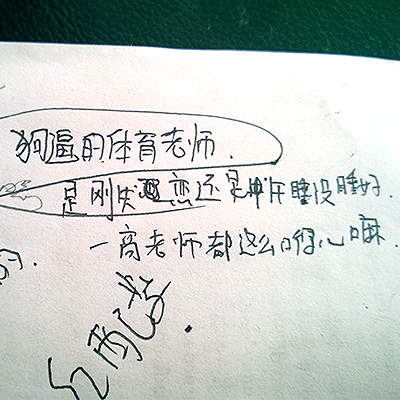 狗逼的体育老师.
是刚失恋还是中午睡没睡好.
一高老师都这么恶心嘛.
的.